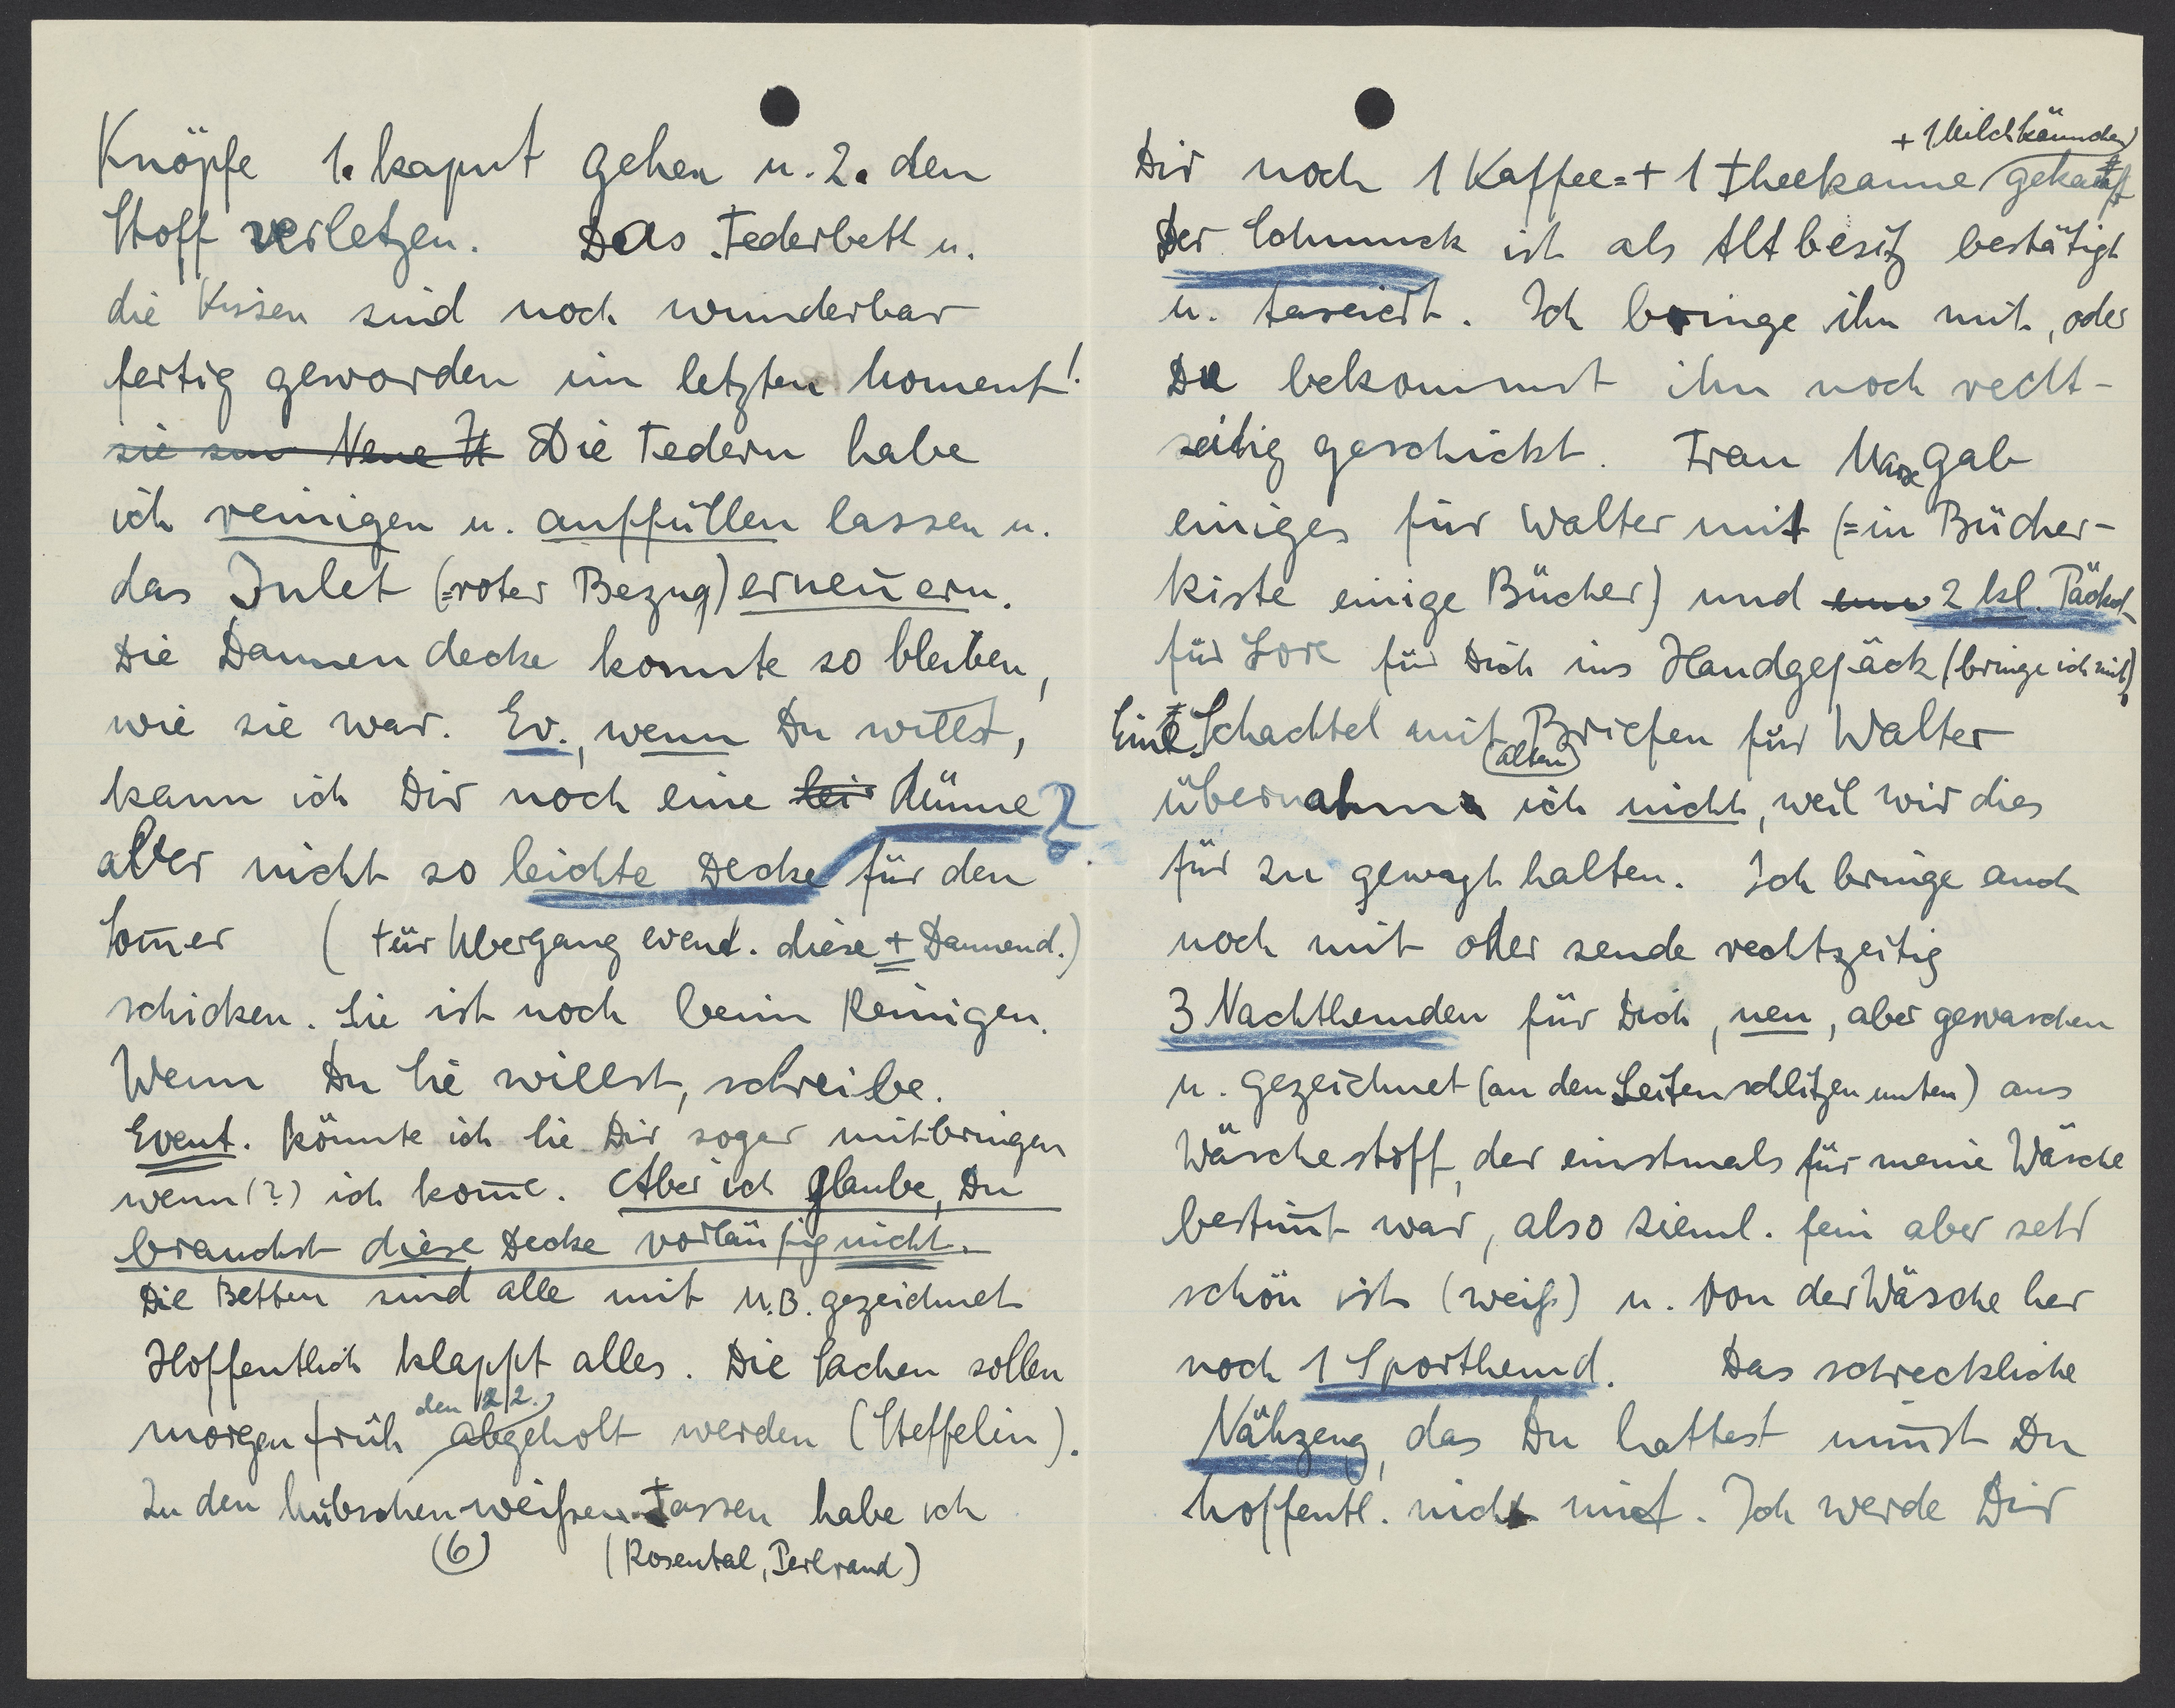 Knöpfe 1. kaput gehen u. 2. den
Stoff verletzen. Das Federbett u.
die Kissen sind noch wunderbar
fertig geworden im letzten Moment!
sie sin Neue It Die Federn habe
ich reinigen u. auffüllen lassen u.
das Inlet (=roter Bezug) erneuern.
Die Daunendecke konnte so bleiben,
wie sie war. Ev., wenn Du willst,
kann ich Dir noch eine lei dünne?
aber nicht so leichte Decke für den
Som̄er (für Übergang event. diese + Daunend.)
schicken. Sie ist noch beim Reinigen.
Wenn Du sie willst, schreibe.
Event. könnte ich sie Dir sogar mitbringen
wenn (?) ich kom̄e. Aber ich glaube, Du
brauchst diese Decke vorläufig nicht.
Die Betten sind alle mit M.B. gezeichnet
Hoffentlich klappt alles. Die Sachen sollen
den 22.
morgen früh abgeholt werden (Steffelin).
Zu den hübschen weißen Tassen habe ich
(6) (Rosental, Perlrand)
+ 1 Milchkännchen
Dir noch 1 Kaffee= + 1 Theekanne gekauft
Der Schmuck ist als Altbesitz bestätigt
u. taxiert. Ich bringe ihn mit, oder
Du bekommst ihn noch recht-
zeitig geschickt. Frau gab
einiges für Walter mit (=in Bücher-
kiste einige Bücher) und 2 kl. Päckch.
für Lore für Dich ins Handgepäck (bringe ich mit)
Eine Schachtel mit Briefen für Walter
(alten)
übernahm ich nicht, weil wir dies
für zu gewagt halten. Ich bringe auch
noch mit oder sende rechtzeitig
3 Nachthemden für Dich, neu, aber gewaschen
u. gezeichnet (an den Seitenschlitzen unten) aus
Wäschestoff, der einstmals für meine Wäsche
bestim̄t war, also zieml. fein aber sehr
schön ist (weiß) u. von der Wäsche her
noch 1 Sporthemd. Das schreckliche
Nähzeug, das Du hattest nim̄st Du
hoffentl. nicht mit. Ich werde Dir